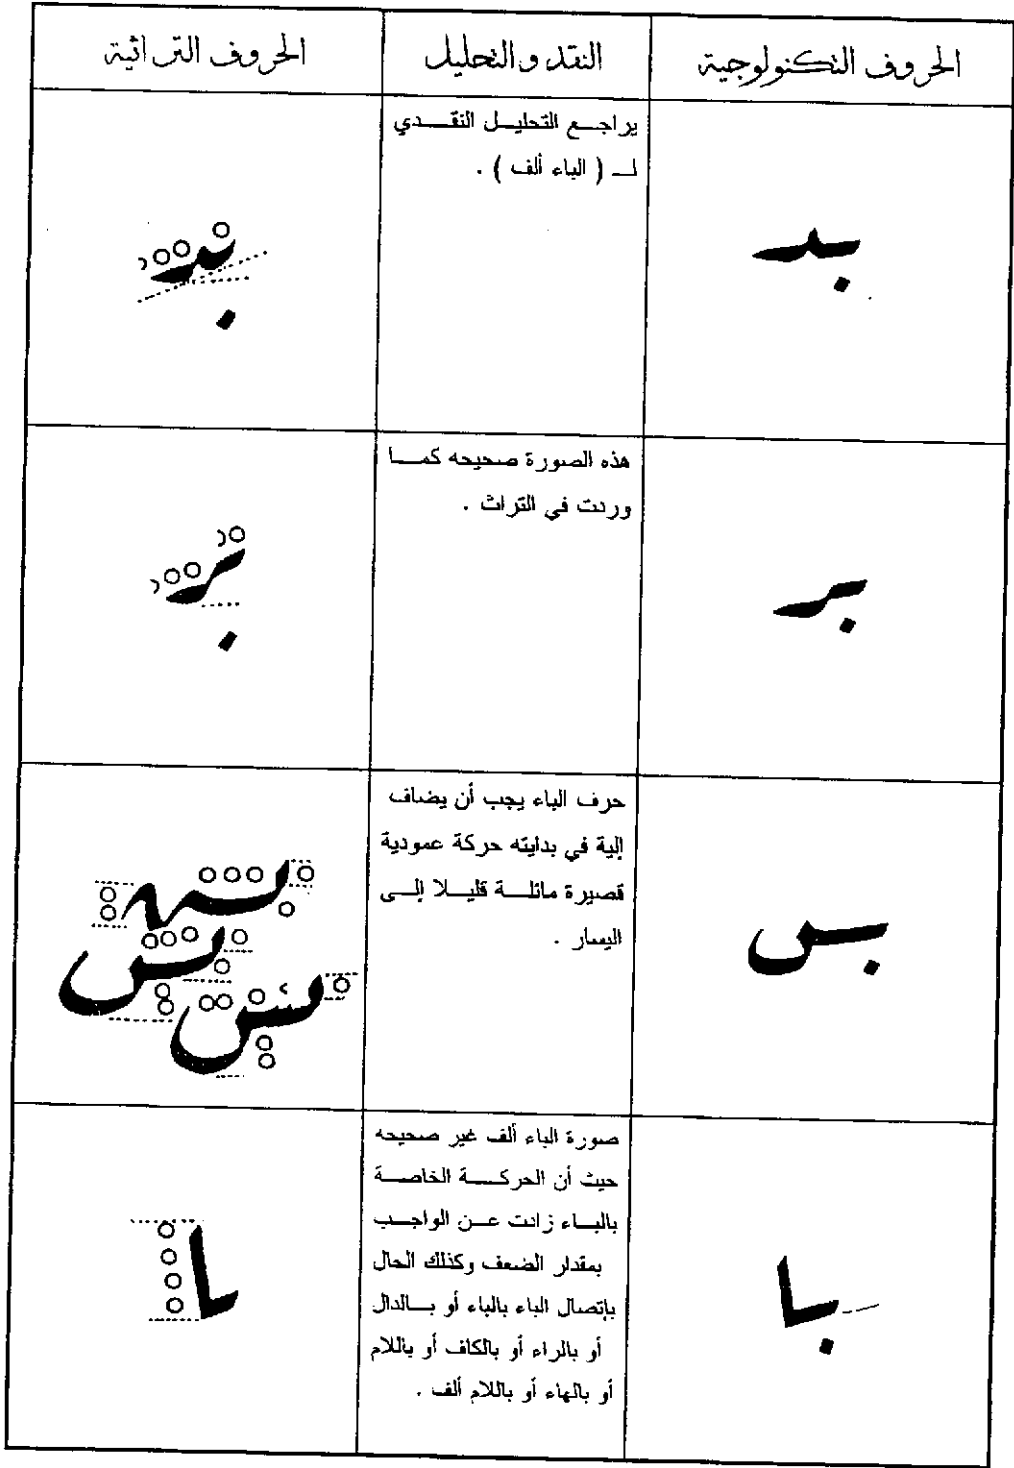 الحروف التكنولوجية
النقد والتحليل
الحروف التراثية
بد
يراجع التحليل النقدي
لـ ( الباء ألف ) .
بد
بر
هذه الصورة صحيحه كما
وردت في التراث .
بر
بس
حرف الباء يجب أن يضاف
إلية في بدايته حركة عمودية
قصيرة مائلة قليلا إلى
اليسار .
با
صورة الباء ألف غير صحيحه
حيث أن الحركة الخاصة
بالباء زادت عن الواجب
بمقدار الضعف وكذلك الحال
بإتصال الباء بالباء أو بالدال
أو بالراء أو بالكاف أو باللام
أو بالهاء أو باللام ألف .